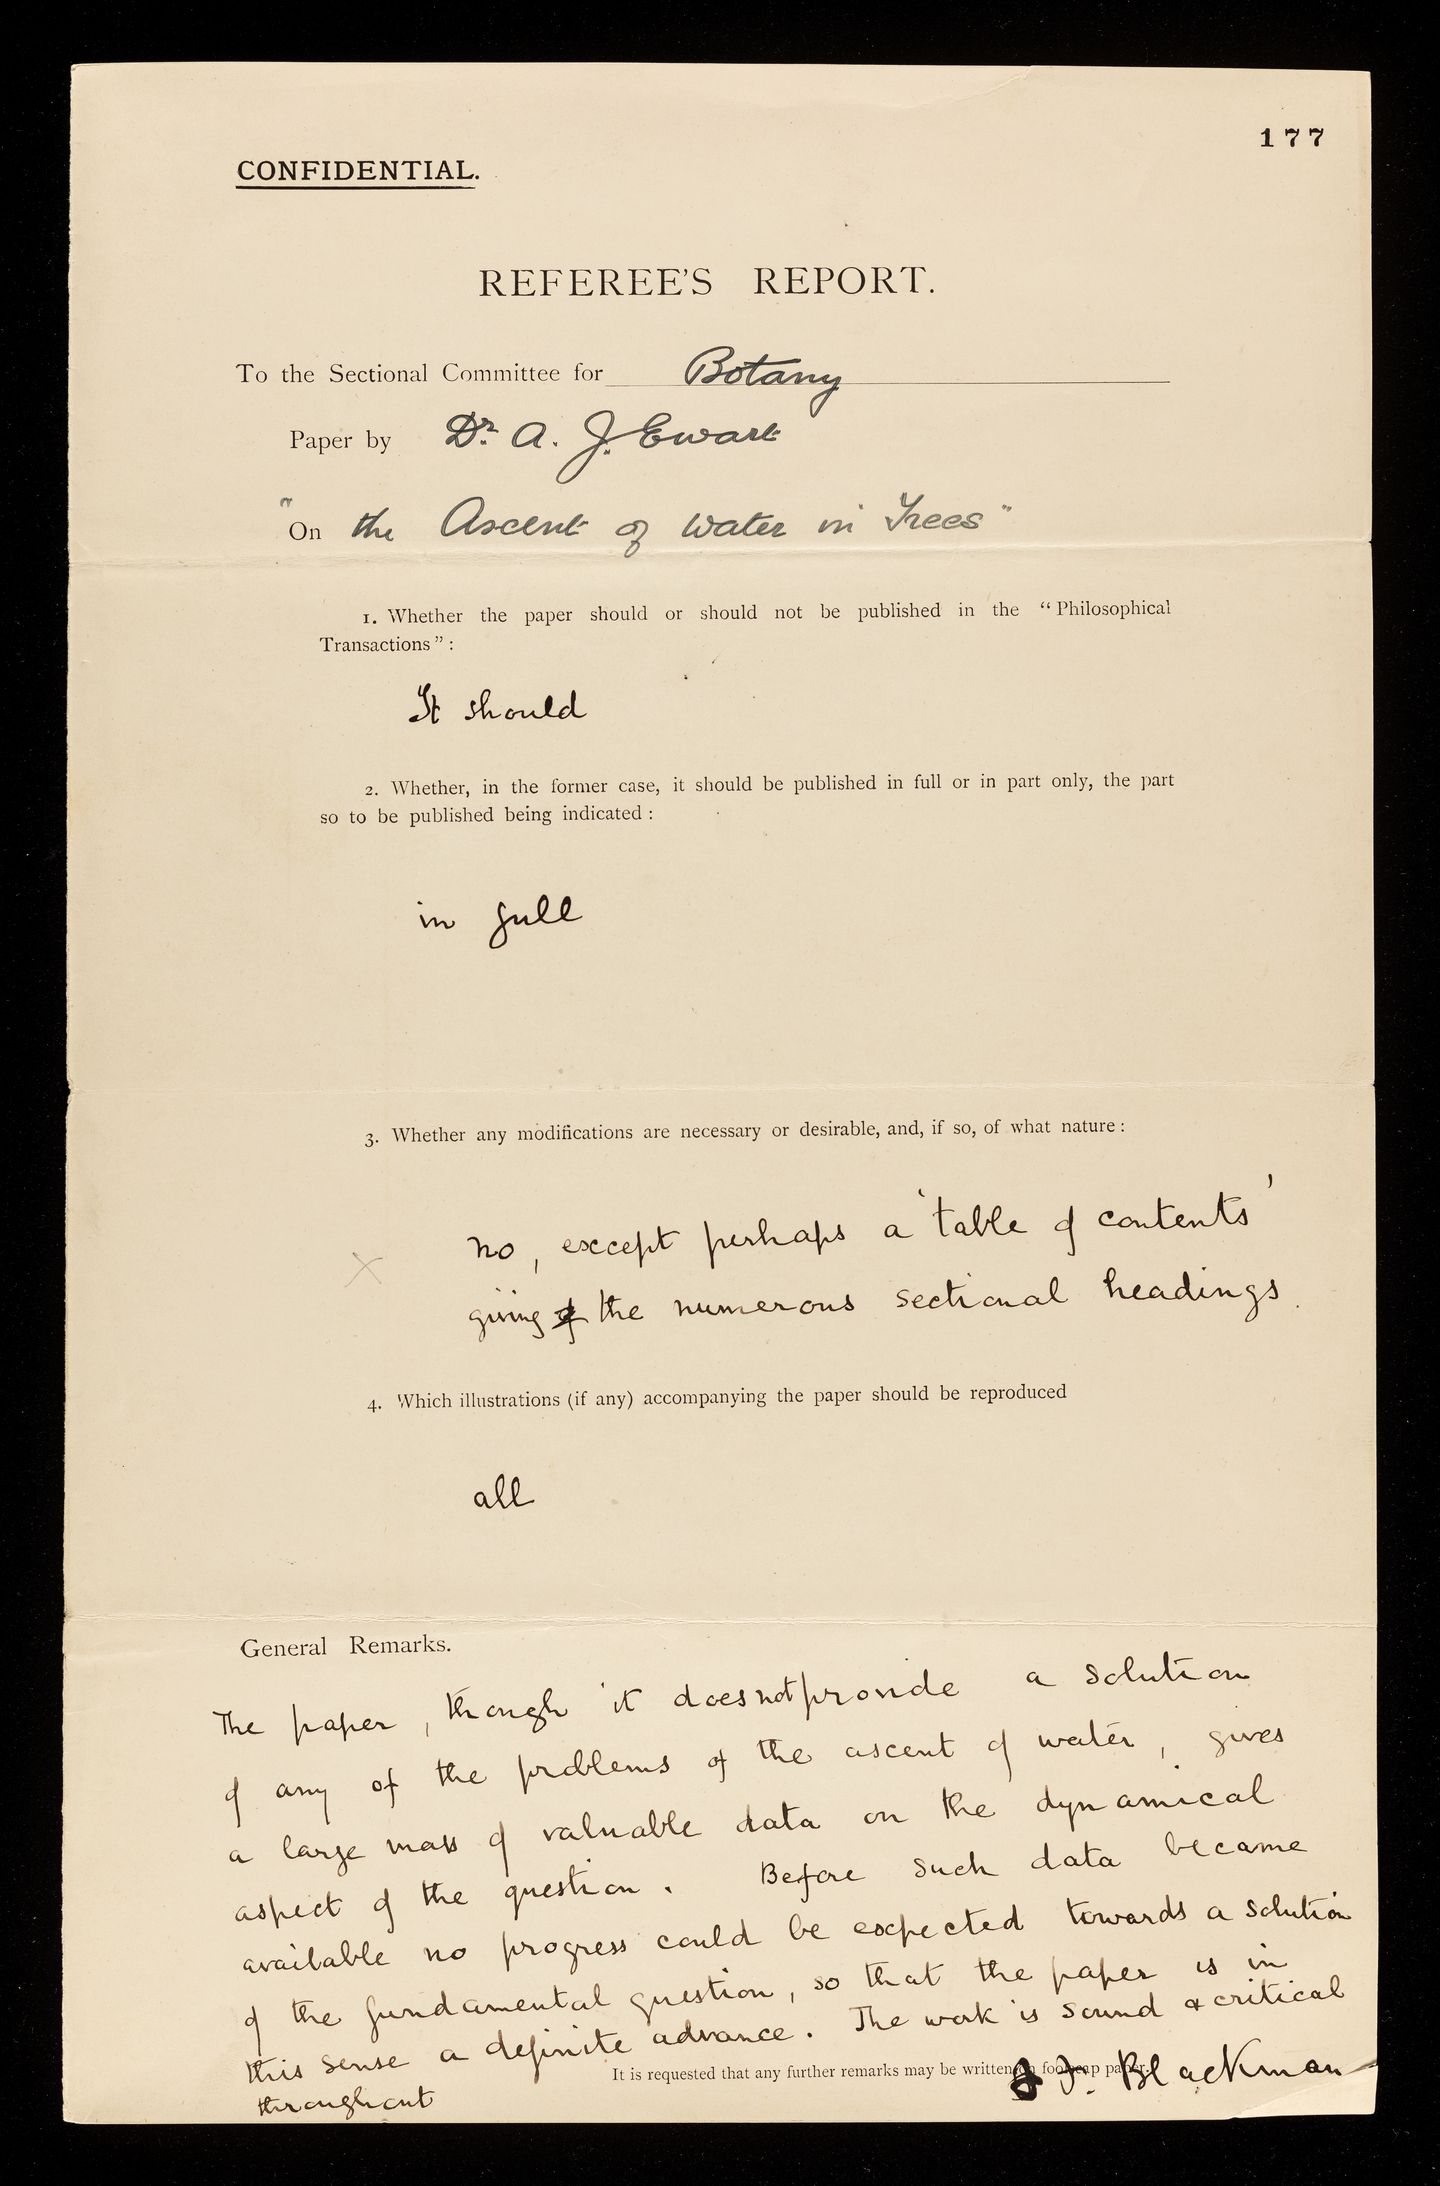 177
CONFIDENTIAL.
REFEREE'S REPORT.
To the Sectional Committee for Botany
Paper by Dr. A. J. Ewart
"On the Ascent of Water in Trees"
1. Whether the paper should or should not be published in the "Philosophical
Transactions":
It should
2. Whether, in the former case, it should be published in full or in part only, the part
so to be published being indicated:
in full
3. Whether any modifications are necessary or desirable, and, if so, of what nature:
no, except perhaps a 'table of contents'
× giving the numerous sectional headings.
4. Which illustrations (if any) accompanying the paper should be reproduced
all
General Remarks.
The paper, though it does not provide a solution
of any of the problems of the ascent of water, gives
a large mass of valuable data on the dynamical
aspect of the question. Before such data became
available no progress could be expected towards a solution
of the fundamental question, so that the paper is in
this sense a definite advance. The work is sound & critical
throughout
It is requested that any further remarks may be written on foolscap paper.
Blackman